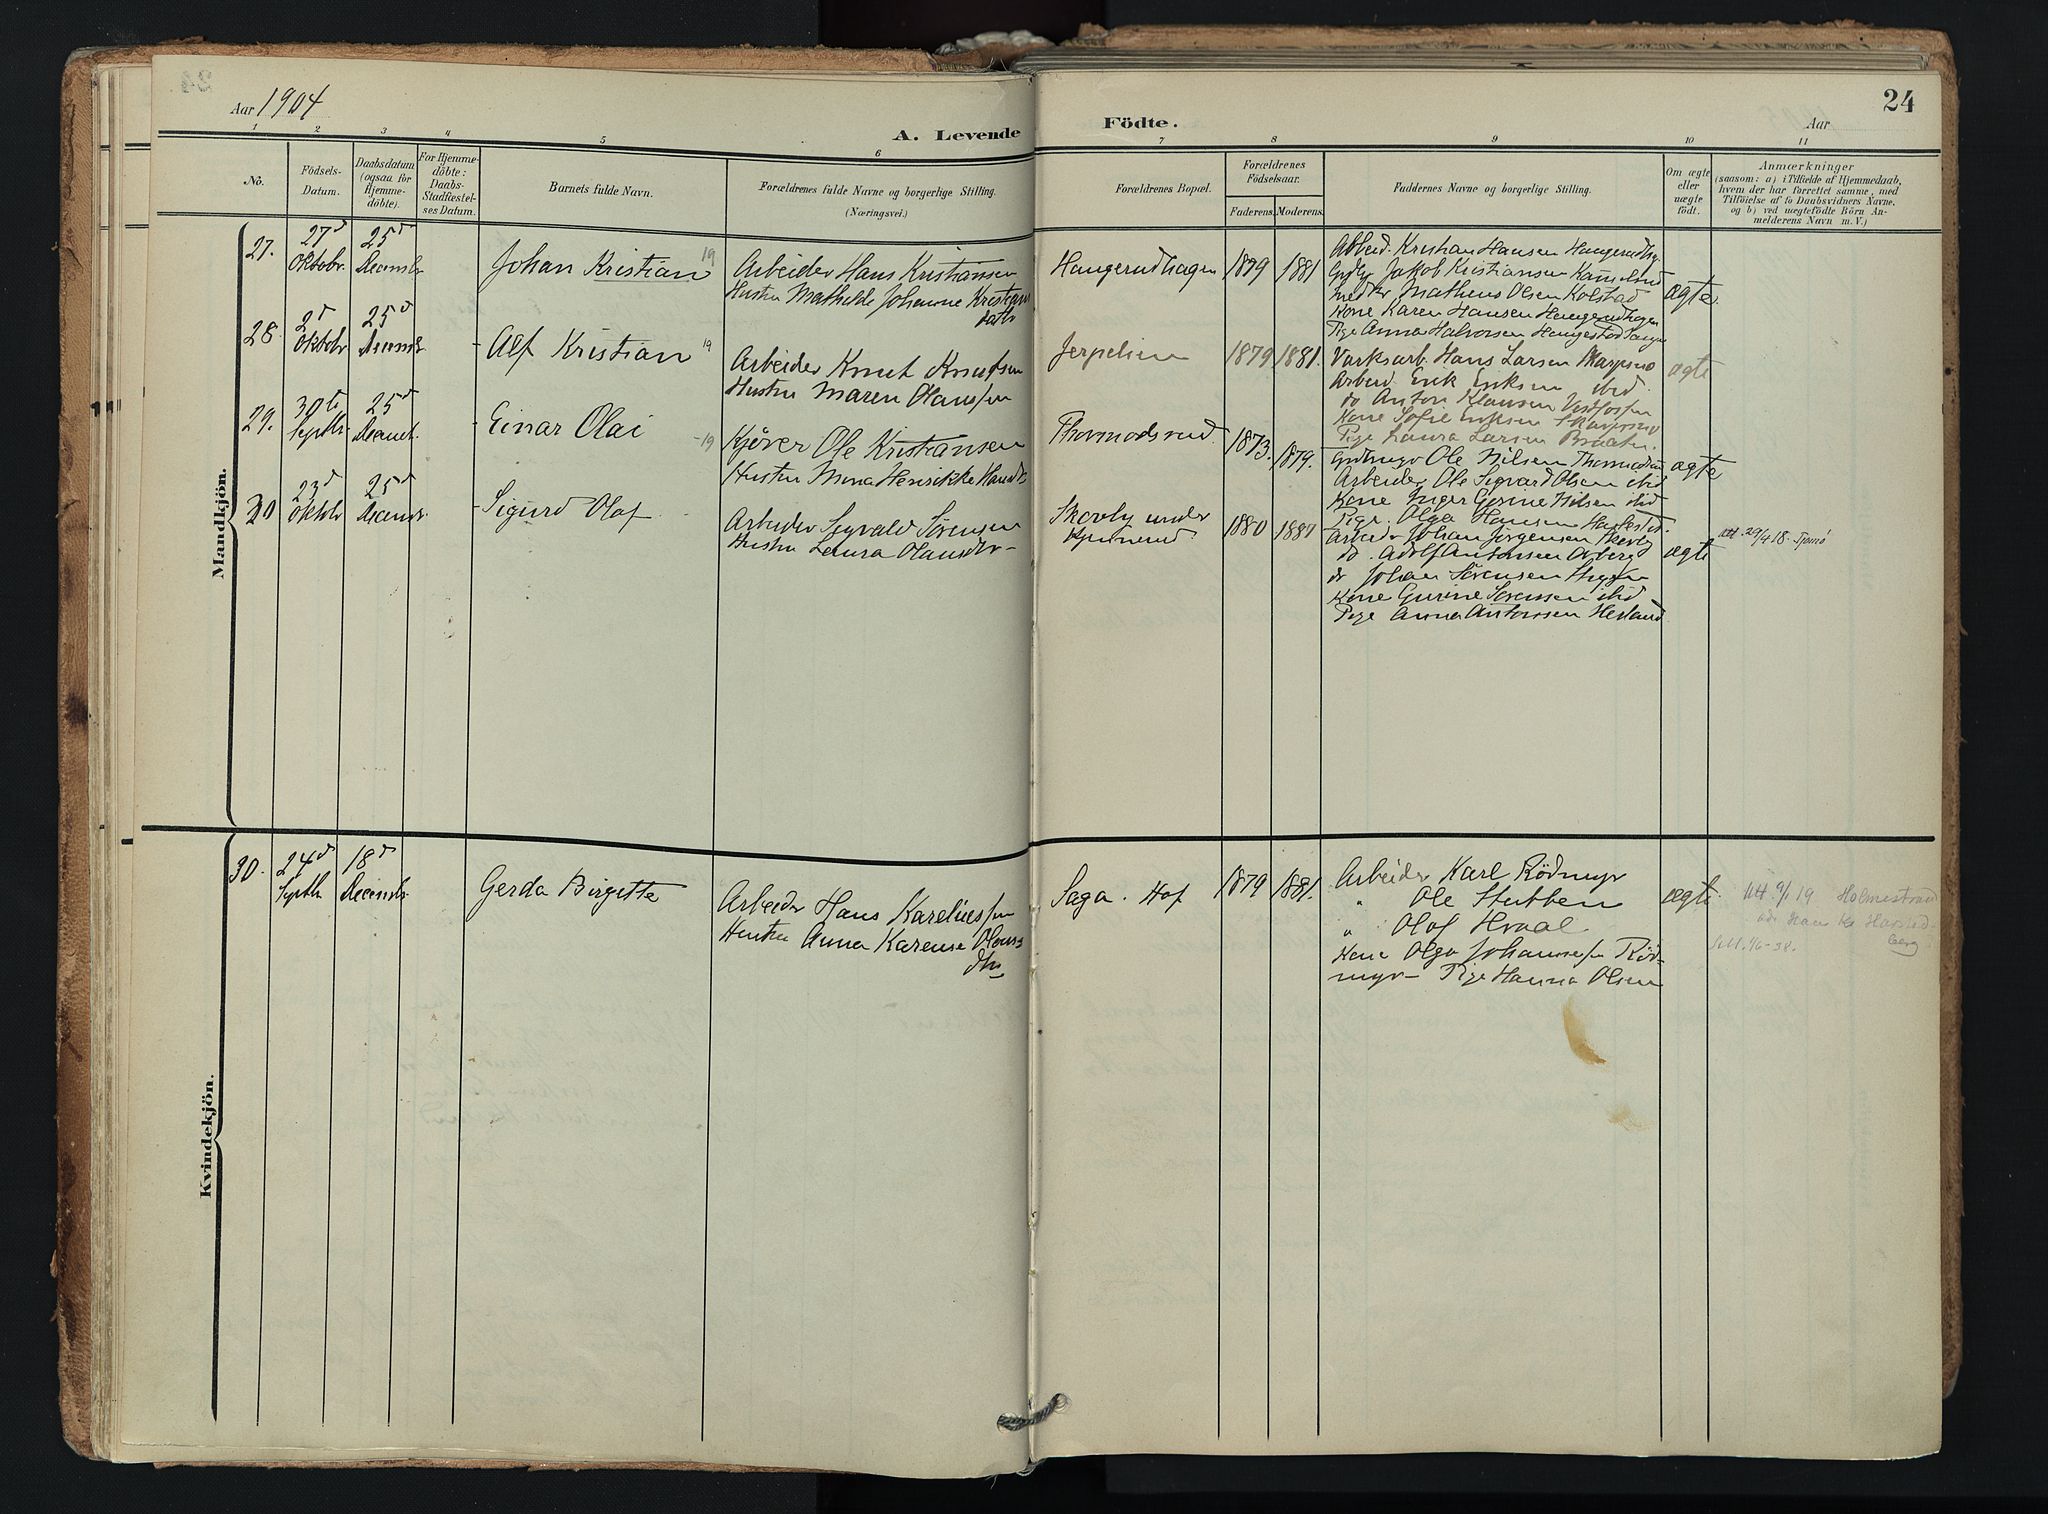 24
Aar 1904
A. Levende Födte.
Aar
1 2 3 4 5 6 7 8 8 9 10 11
No.
Födsels-
Datum.
Daabsdatum
(ogsaa for
Hjemme-
döbte).
For Hjemme-
döbte:
Daabs-
Stadfæstel-
ses Datum.
Barnets fulde Navn.
Forældrenes fulde Navne og borgerlige Stilling.
(Næringsvei.)
Forældrenes Bopæl.
Forældrenes
Födselsaar.
Faderens. Moderens.
Faddernes Navne og borgerlige Stilling.
Om ægte
eller
uægte
födt.
Anmærkninger
(saasom: a) i Tilfælde af Hjemmedaab,
hvem der har forrettet samme, med
Tilföielse af to Daabsvidners Navne,
og b) ved uægtefödte Börn An-
melderens Navn m. V.)
Mandkjön.
27.
27d
Oktobr.
25d
Decembr
Johan Kristian 19
Arbeider Hans Kristiansen
Hustru Mathilde Johanne Kristians
datr
Haugerudhagen
1879 1881
Arbeid. Kristian Hansen
Jakob Kristiansen
Matheus Olsen Kolstad
Kone Karen Hansen Haugerudhagen
Pige Anna Halvorsen
ægte
28.
2d
Oktobr
25d
Decembr
Alf Kristian 19
Arbeider Knut Knutsen
Hustru Maren Olaussen
Jerpelien
1879 1881.
Værksarb. Hans Larsen
Arbeid. Erik Eriksen ibid.
do Anton Klausen Vestfossen
Kone Sofie Eriksen
Pige Laura Larsen Braaten.
ægte
29.
30te
Septbr
25d
Decembr.
Einar Olai 19
Kjörer Ole Kristiansen
Hustru Mina Henrikke
Thormodsrud.
1873. 1879.
Ole Nilsen
Arbeider Ole Sigvard Olsen ibid
Kone Inger Gurine Nilsen ibid
Pige. Olga Hansen
ægte
30
23d
Oktobr
25d
Decembr.
Sigurd Olaf
Arbeider Sigvald Sörensen
Hustru Laura Olausdtr
Skovly under
1880 1880
Arbeidr Johan Jörgensen Skovly
do. Adolf Antonsen
do Johan Sörensen
Kone Gurine Sörensen ibid
Pige Anna Antonsen
ægte
utt. 29/4 18. Tjömö
Kvindekjön.
30.
24d
Septbr
18d
Decembr
Gerda Birgitte
Arbeider Hans Kareliussen
Hustru Anna Karense Olaus
dtr
Saga. Hof
1879 1881.
Arbeider Karl Rödmyr
" Ole Stubben
" Olof Hvaal
Kone Olga Johannessen Röd-
myr - Pige Hanna Olsen
ægte
utt 9/1 19 Holmestrand